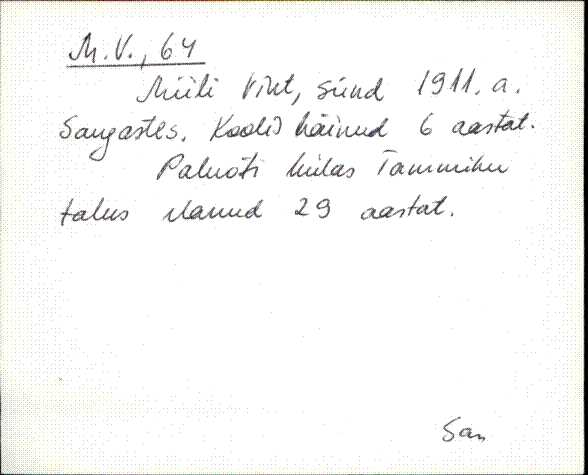 M.V., 64
Miili Vint, sünd 1911. a.
Sangastes. Koolis käinud 6 aastat.
Paluoti külas Tammiku
talus elanud 29 aastat.
San